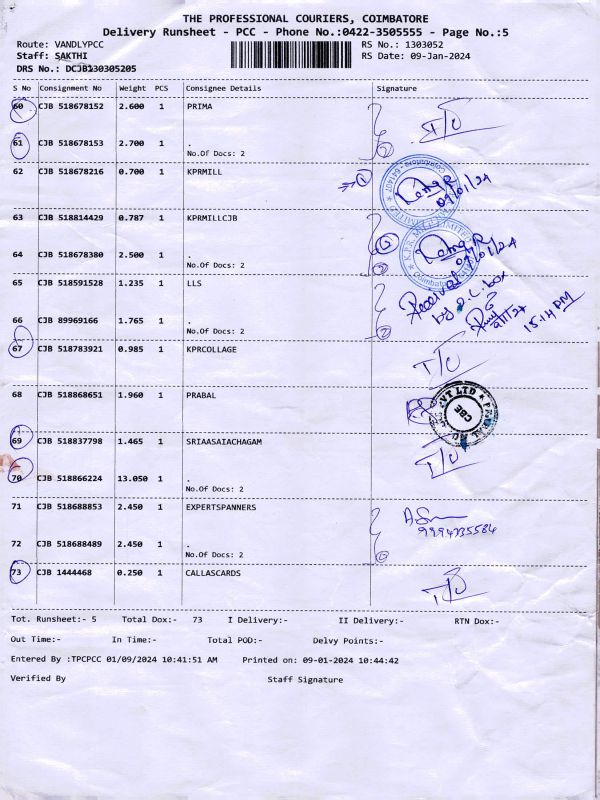 THE PROFESSIONAL COURIERS, COIMBATORE
Delivery Runsheet - PCC - Phone No.:0422-3505555 - Page No.:5
Route: VANDLYPCC RS No.: 1303052
Staff: SAKTHI RS Date: 09-Jan-2024
DRS No.: DCJB130305205
S No Consignment No Weight PCS Consignee Details Signature
60 CJB 518678152 2.600 1 PRIMA
T/O
61 CJB 518678153 2.700 1 .
No.Of Docs: 2 2
62 CJB 518678216 0.700 1 KPRMILL 1
09/01/24
63 CJB 518814429 0.787 1 KPRMILLCJB
09/01/24
64 CJB 518678380 2.500 1 .
No.Of Docs: 2 2
65 CJB 518591528 1.235 1 LLS
Received
66 CJB 89969166 1.765 1 .
15.14 PM
No.Of Docs: 2 2
67 CJB 518783921 0.985 1 KPRCOLLAGE
T/O
68 CJB 518868651 1.960 1 PRABAL
CBE
69 CJB 518837798 1.465 1 SRIAASAIACHAGAM
T/O
70 CJB 518866224 13.050 1 .
No.Of Docs: 2
71 CJB 518688853 2.450 1 EXPERTSPANNERS
72 CJB 518688489 2.450 1 .
No.Of Docs: 2 2
73 CJB 1444468 0.250 1 CALLASCARDS
T/O
Tot. Runsheet:- 5 Total Dox:- 73 I Delivery:- II Delivery:- RTN Dox:-
Out Time:- In Time:- Total POD:- Delvy Points:-
Entered By :TPCPCC 01/09/2024 10:41:51 AM Printed on: 09-01-2024 10:44:42
Verified By Staff Signature